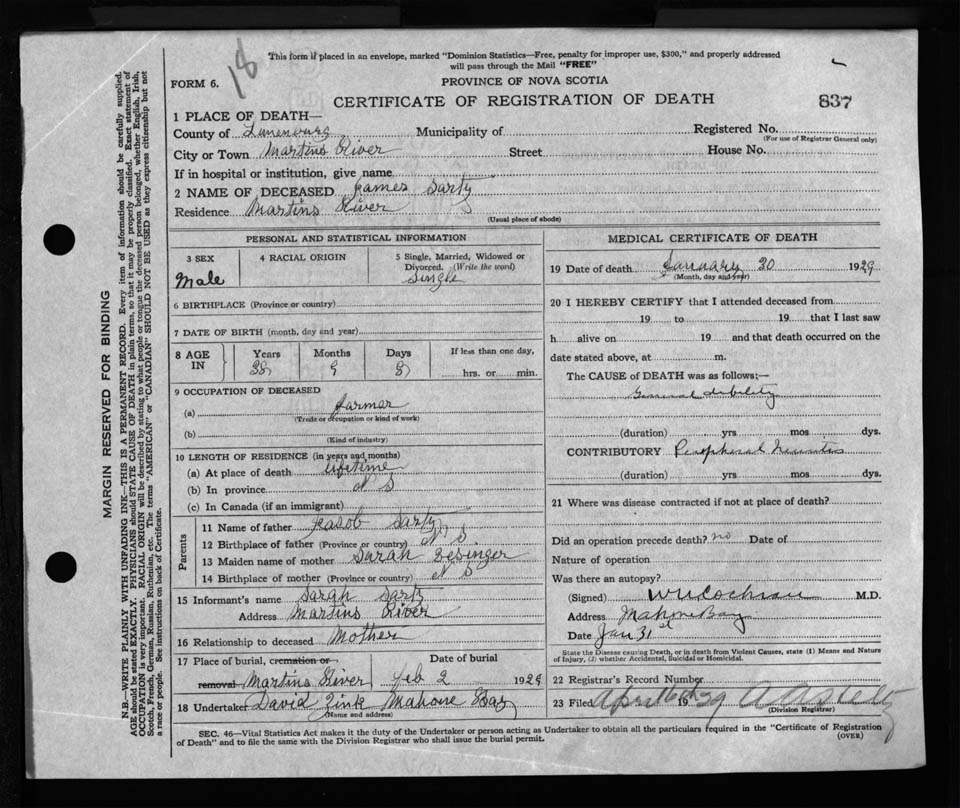 18
This form if placed in an envelope, marked "Dominion Statistics—Free, penalty for improper use, $300," and properly addressed
will pass through the Mail "FREE"
FORM 6.
PROVINCE OF NOVA SCOTIA
CERTIFICATE OF REGISTRATION OF DEATH
837
1 PLACE OF DEATH—
County of Lunenburg Municipality of Registered No.
(For use of Registrar General only)
City or Town Martins River Street House No.
If in hospital or institution, give name
2 NAME OF DECEASED James Sarty
Residence Martins River
(Usual place of abode)
PERSONAL AND STATISTICAL INFORMATION
3 SEX
Male
4 RACIAL ORIGIN
5 Single, Married, Widowed or
Divorced. (Write the word)
Single
6 BIRTHPLACE (Province or country)
7 DATE OF BIRTH (month, day and year)
8 AGE IN
Years Months Days If less than one day,
9 8 hrs. or min.
9 OCCUPATION OF DECEASED
(a) farmer
(Trade or occupation or kind of work)
(b)
(Kind of industry)
10 LENGTH OF RESIDENCE (in years and months)
(a) At place of death lifetime
(b) In province N S
(c) In Canada (if an immigrant)
Parents
11 Name of father Jacob Sarty
12 Birthplace of father (Province or country) N S.
13 Maiden name of mother Sarah
14 Birthplace of mother (Province or country) N S
15 Informant's name Sarah Sarty
Address Martins River
16 Relationship to deceased Mother
17 Place of burial, cremation or Date of burial
removal Martins River Feb 2 1929
18 Undertaker David Zink Mahone Bay
(Name and address)
MEDICAL CERTIFICATE OF DEATH
19 Date of death January 30 1929
(Month, day and year)
20 I HEREBY CERTIFY that I attended deceased from
19 to 19 that I last saw
h alive on 19 and that death occurred on the
date stated above, at m.
The CAUSE of DEATH was as follows:—
General debility
(duration) yrs mos dys.
CONTRIBUTORY Peripheral Neuritis
(duration) yrs mos dys.
21 Where was disease contracted if not at place of death?
Did an operation precede death? no Date of
Nature of operation
Was there an autopsy?
(Signed) Cochran M.D.
Address Mahone Bay
Date Jan 31st
State the Disease causing Death, or in death from Violent Causes, state (1) Means and Nature
of Injury, (2) whether Accidental, Suicidal or Homicidal.
22 Registrar's Record Number
23 Filed April 16th 1929
(Division Registrar)
SEC. 46—Vital Statistics Act makes it the duty of the Undertaker or person acting as Undertaker to obtain all the particulars required in the "Certificate of Registration
of Death" and to file the same with the Division Registrar who shall issue the burial permit.
(OVER)
MARGIN RESERVED FOR BINDING
N.B.—WRITE PLAINLY WITH UNFADING INK—THIS IS A PERMANENT RECORD. Every item of information should be carefully supplied.
AGE should be stated EXACTLY. PHYSICIANS should STATE CAUSE OF DEATH in plain terms, so that it may be properly classified. Exact statement of
OCCUPATION is very important. RACIAL ORIGIN will be described by stating to what people or tongue the deceased person belonged, whether English, Irish,
Scotch, French, German, Russian, Ruthenian, etc. The terms "AMERICAN" or "CANADIAN" SHOULD NOT BE USED as they express citizenship but not
a race or people. See instructions on back of Certificate.